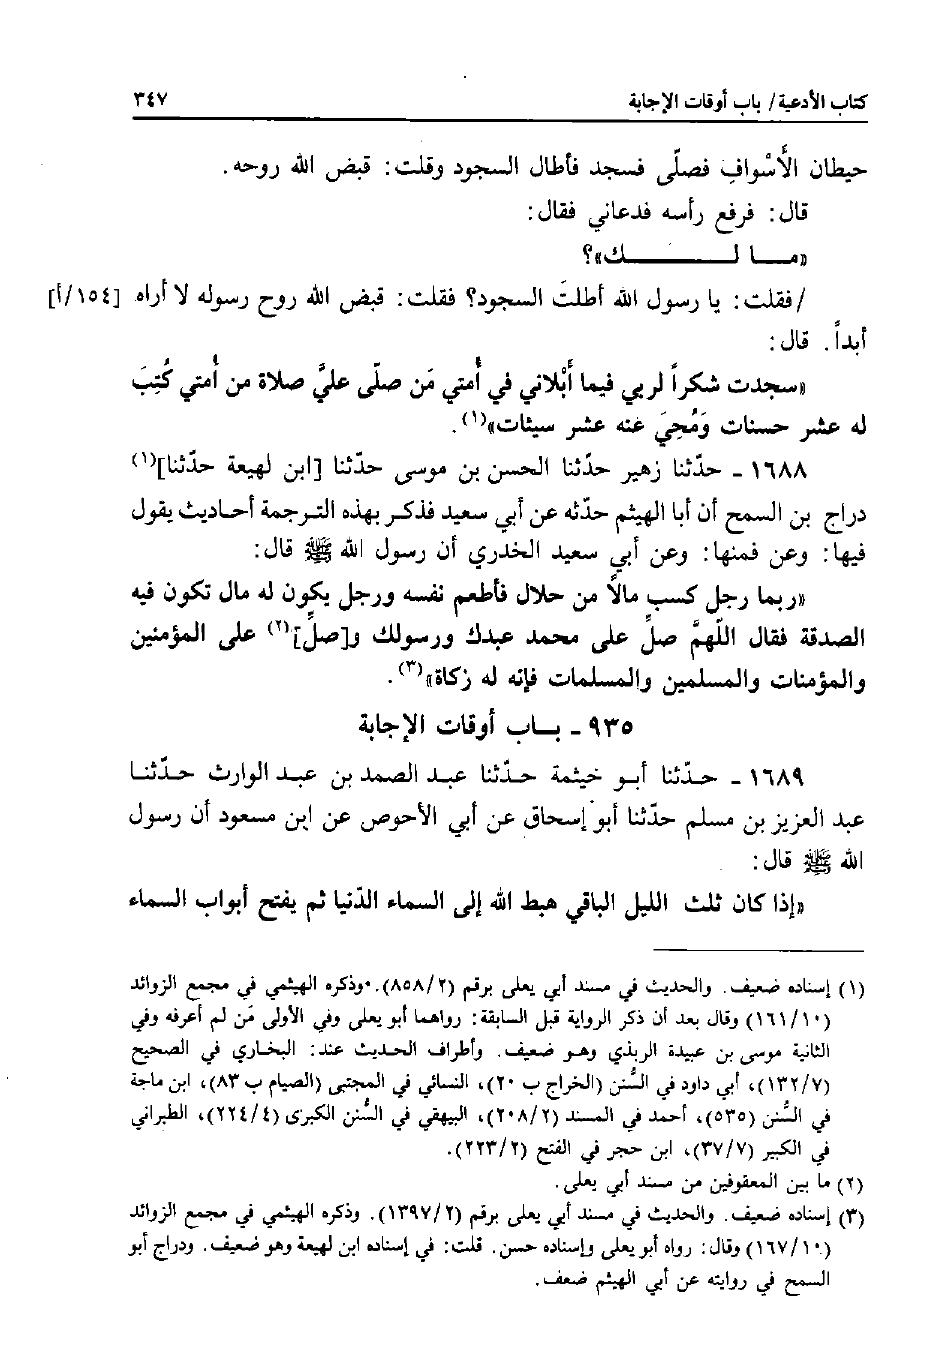 كتاب الأدعية/ باب أوقات الإجابة ٣٤٧
حيطان الأَسْوافِ فصلّى فسجد فأطال السجود وقلت: قبض الله روحه.
قال: فرفع رأسه فدعاني فقال:
«مـــا لـــــــك»؟
/فقلت: يا رسول الله أطلتَ السجود؟ فقلت: قبض الله روح رسوله لا أراه [١٥٤/أ]
أبداً. قال:
«سجدت شكراً لربي فيما أَبْلاني في أُمتي مَن صلّى عليَّ صلاة من أُمتي كُتِبَ
له عشر حسنات وَمُحِيَ عنه عشر سيئات»(١).
١٦٨٨ - حدّثنا زهير حدّثنا الحسن بن موسى حدّثنا [ابن لهيعة حدّثنا](١)
دراج بن السمح أن أبا الهيثم حدّثه عن أبي سعيد فذكر بهذه الترجمة أحاديث يقول
فيها: وعن فمنها: وعن أبي سعيد الخدري أن رسول الله ﷺ قال:
«ربما رجل كسب مالاً من حلال فأطعم نفسه ورجل يكون له مال تكون فيه
الصدقة فقال اللّهمَّ صلِّ على محمد عبدك ورسولك و[صلِّ](٢) على المؤمنين
والمؤمنات والمسلمين والمسلمات فإنه له زكاة»(٣).
٩٣٥ - بــاب أوقات الإجابة
١٦٨٩ - حدّثنا أبو خيثمة حدّثنا عبد الصمد بن عبد الوارث حدّثنا
عبد العزيز بن مسلم حدّثنا أبو إسحاق عن أبي الأحوص عن ابن مسعود أن رسول
الله ﷺ قال:
«إذا كان ثلث الليل الباقي هبط الله إلى السماء الدّنيا ثم يفتح أبواب السماء
(١) إسناده ضعيف. والحديث في مسند أبي يعلى برقم (٨٥٨/٢). وذكره الهيثمي في مجمع الزوائد
(١٦١/١٠) وقال بعد أن ذكر الرواية قبل السابقة: رواهما أبو يعلى وفي الأولى مَن لم أعرفه وفي
الثانية موسى بن عبيدة الربذي وهو ضعيف. وأطراف الحديث عند: البخاري في الصحيح
(١٣٢/٧)، أبي داود في السُّنن (الخراج ب ٢٠)، النسائي في المجتبى (الصيام ب ٨٣)، ابن ماجة
في السُّنن (٥٣٥)، أحمد في المسند (٢٠٨/٢)، البيهقي في السُّنن الكبرى (٢٢٤/٤)، الطبراني
في الكبير (٣٧/٧)، ابن حجر في الفتح (٢٢٣/٢).
(٢) ما بين المعقوفين من مسند أبي يعلى.
(٣) إسناده ضعيف. والحديث في مسند أبي يعلى برقم (١٣٩٧/٢). وذكره الهيثمي في مجمع الزوائد
(١٦٧/١٠) وقال: رواه أبو يعلى وإسناده حسن. قلت: في إسناده ابن لهيعة وهو ضعيف. ودراج أبو
السمح في روايته عن أبي الهيثم ضعف.